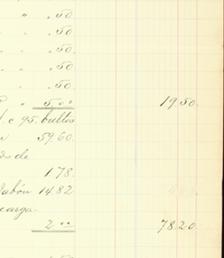 " .50
" .50
" .50
" .50
" .50
" 5.00 1950.
c 95. bultos
5960.
de
178.
abón 1482
carga
2 00 7820.